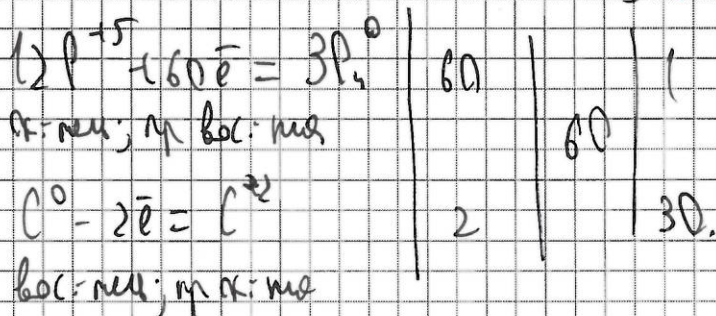 12P⁺⁵ + 60ē = 3P₄⁰ | 60 | 60 | 1
ок-тель; пр вос-ния
C⁰ - 2ē = C⁺² | 2 | 30.
вос-тель; пр ок-ния